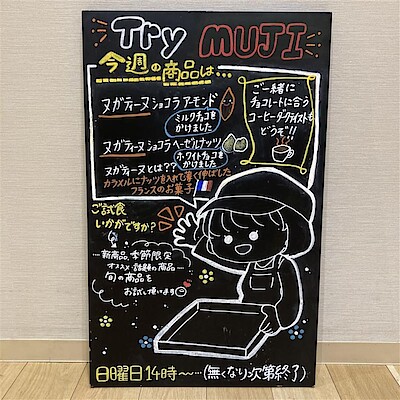 Try MUJI
今週の商品は…
ヌガティーヌショコラアーモンド
ミルクチョコを
かけました
ヌガティーヌショコラヘーゼルナッツ
ホワイトチョコを
かけました
ヌガティーヌとは??
カラメルにナッツを入れて薄く伸ばした
フランスのお菓子
ご一緒に
チョコレートに合う
コーヒーダークテイストも
どうぞ!!
ご試食
いかがですか?
…新商品、季節限定
オススメ・話題の商品…
旬の商品を
お試し頂います
日曜日14時～…(無くなり次第終了)